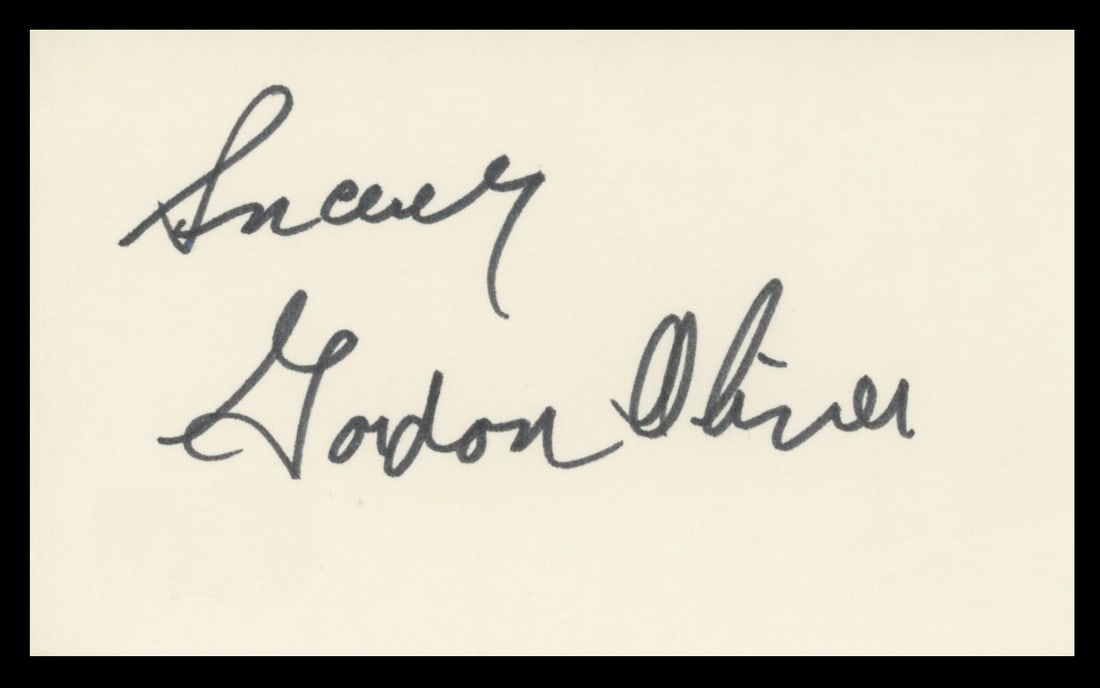 Sincerely
Gordon Oliver